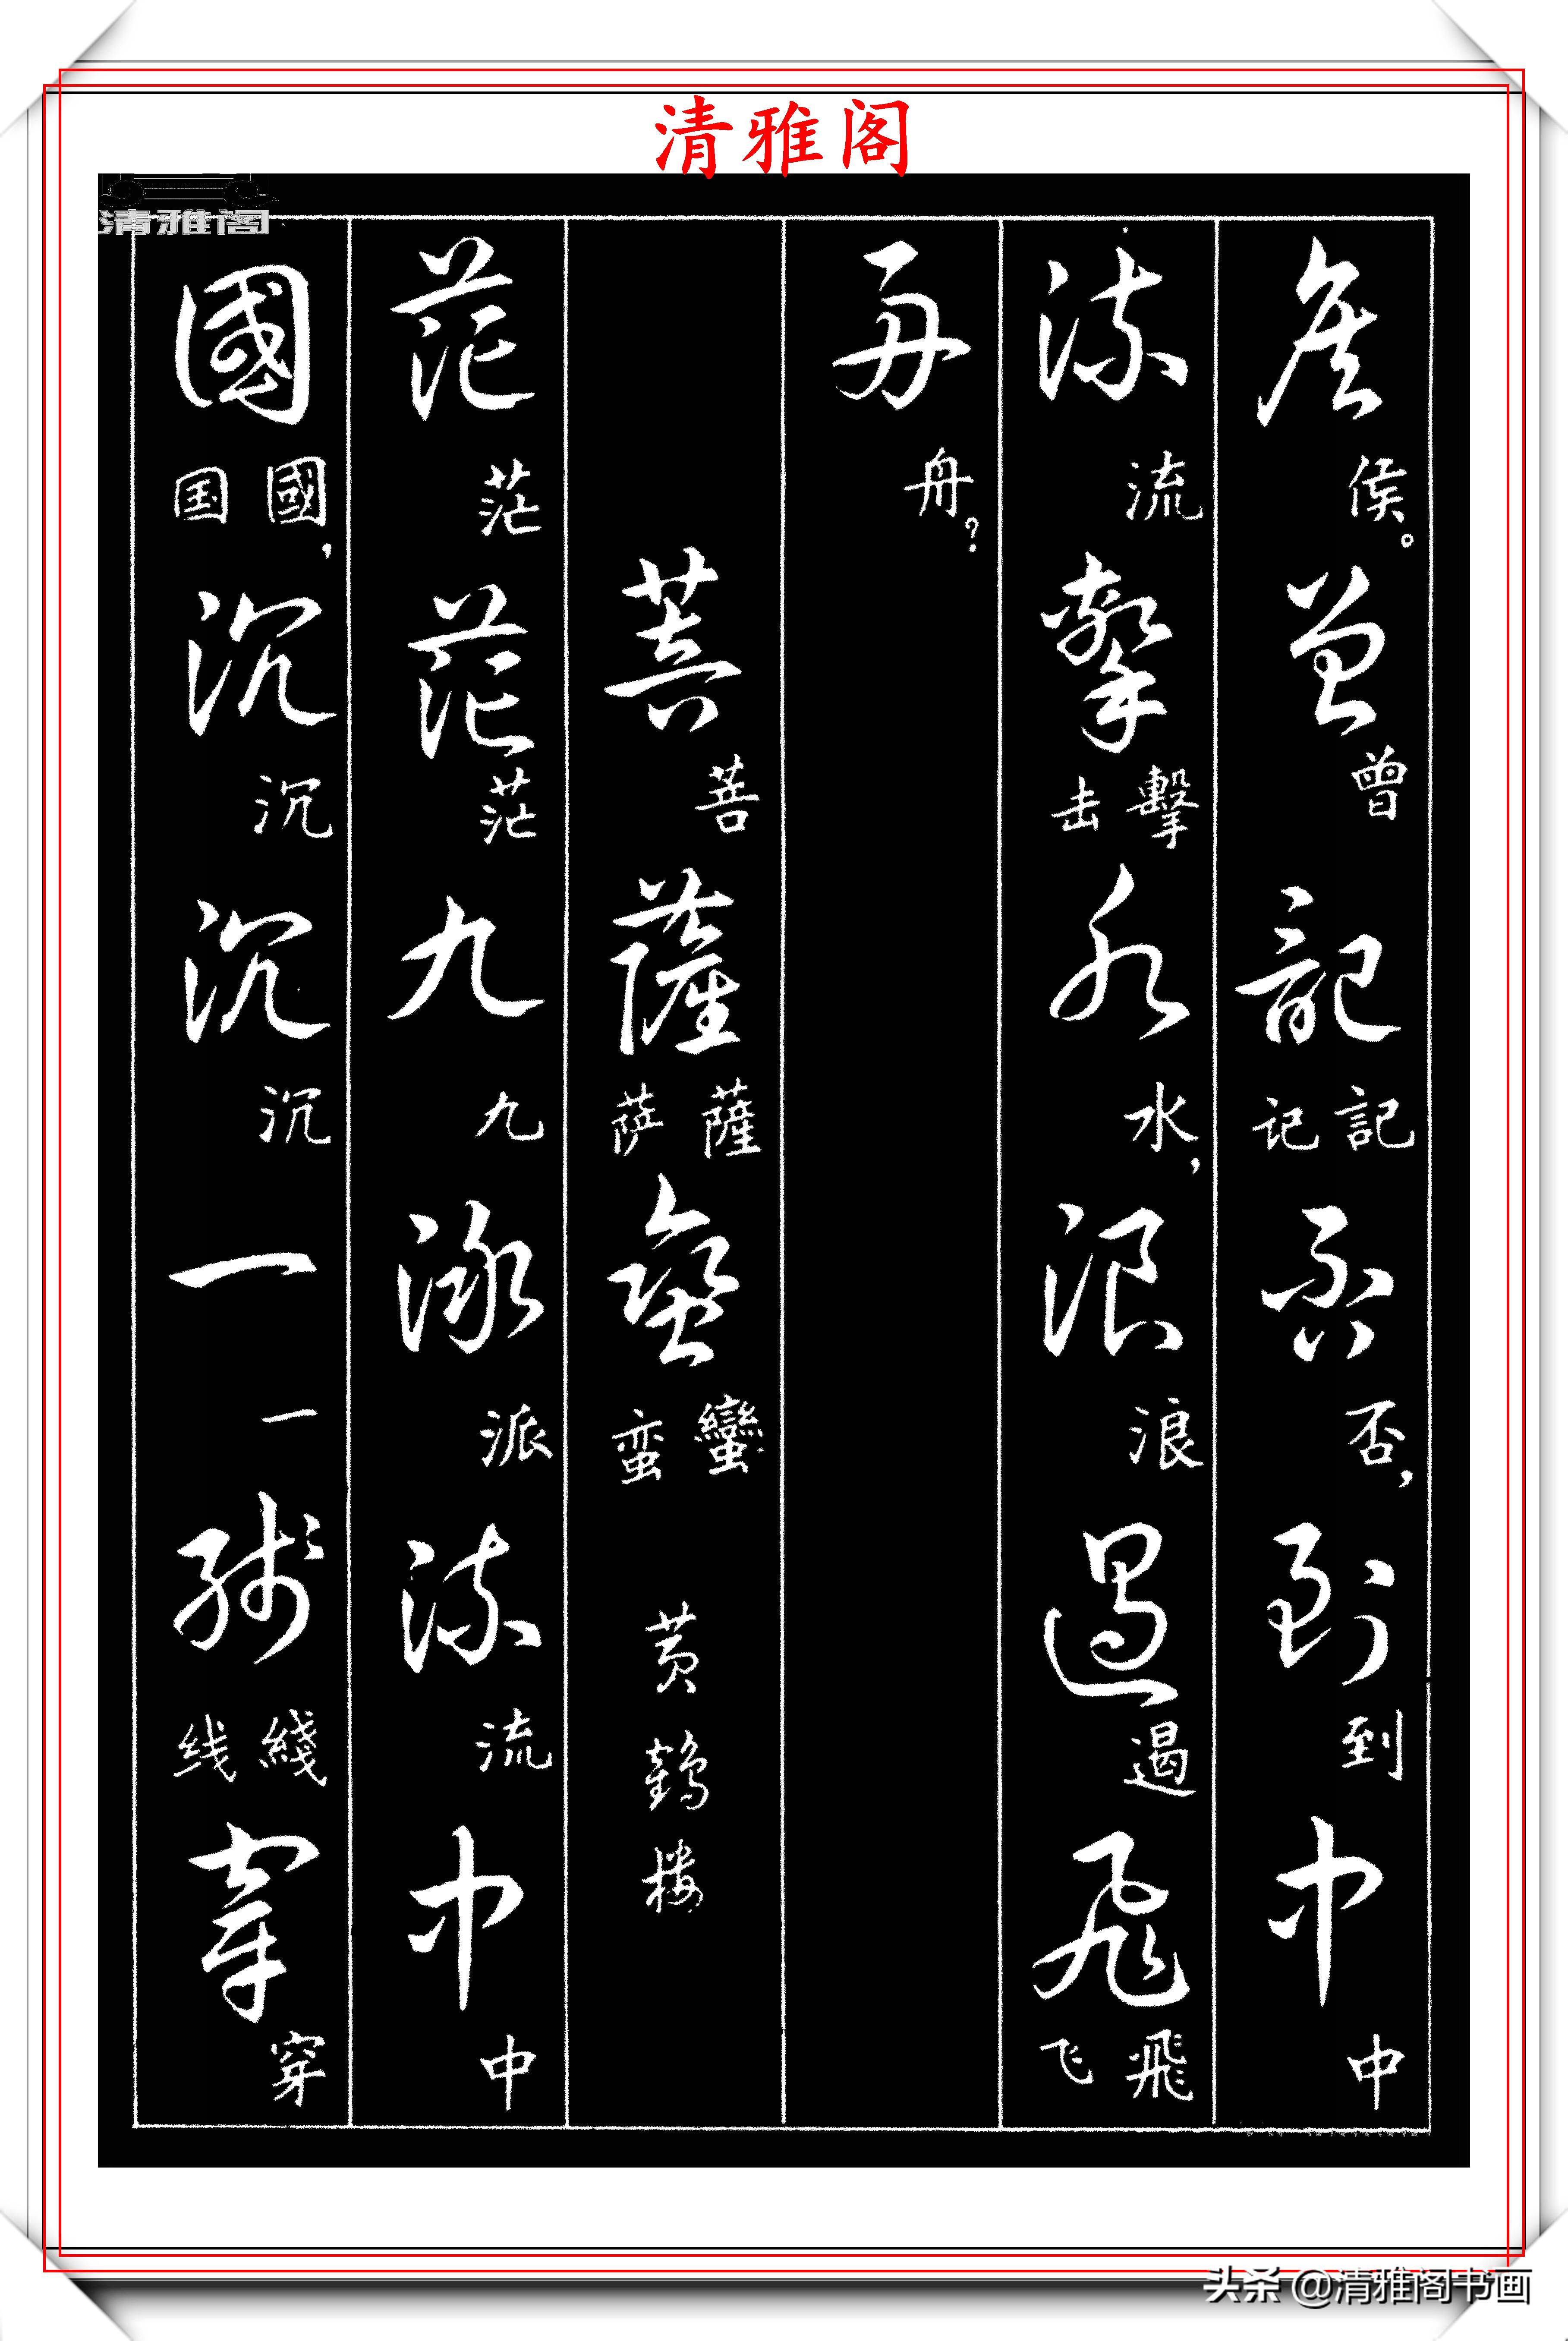 清雅阁
清雅阁
侯侯。曾曾記記记否否，到到中中
流流擊擊击水水，浪浪遏遏飛飛飞
舟舟？
菩菩薩薩萨蠻蠻蛮 黄鹤楼
茫茫茫茫九九派派流流中中
國國，国沉沉沉沉一一綫綫线穿穿
头条 @清雅阁书画